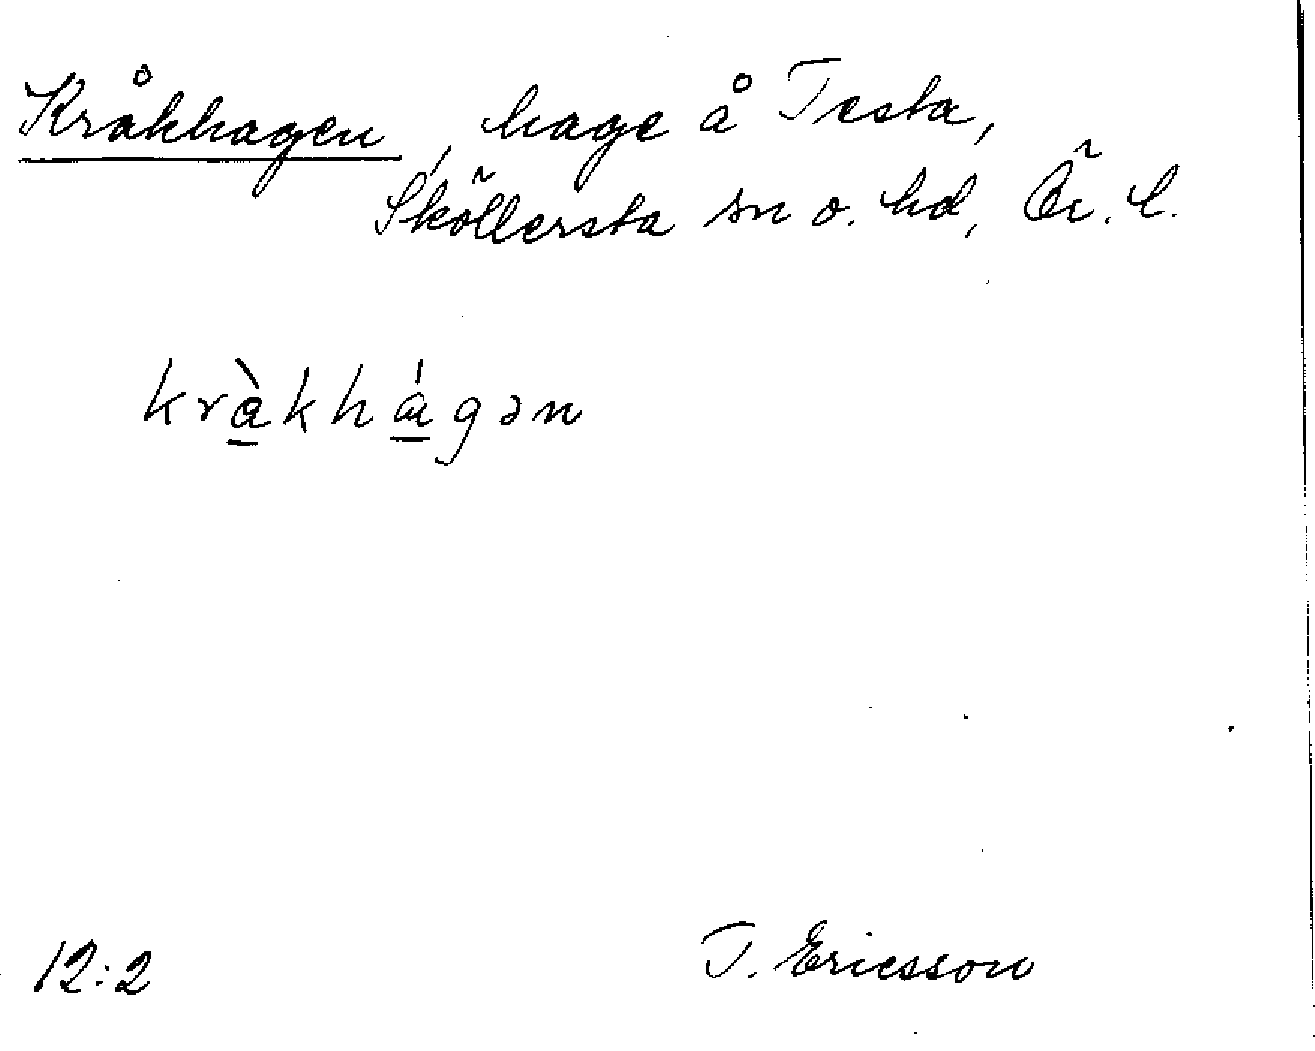 Kråkhagen, hage å Testa,
Sköllersta sn o. hd, Ör. l.
kràkhágən
12:2
T. Ericsson